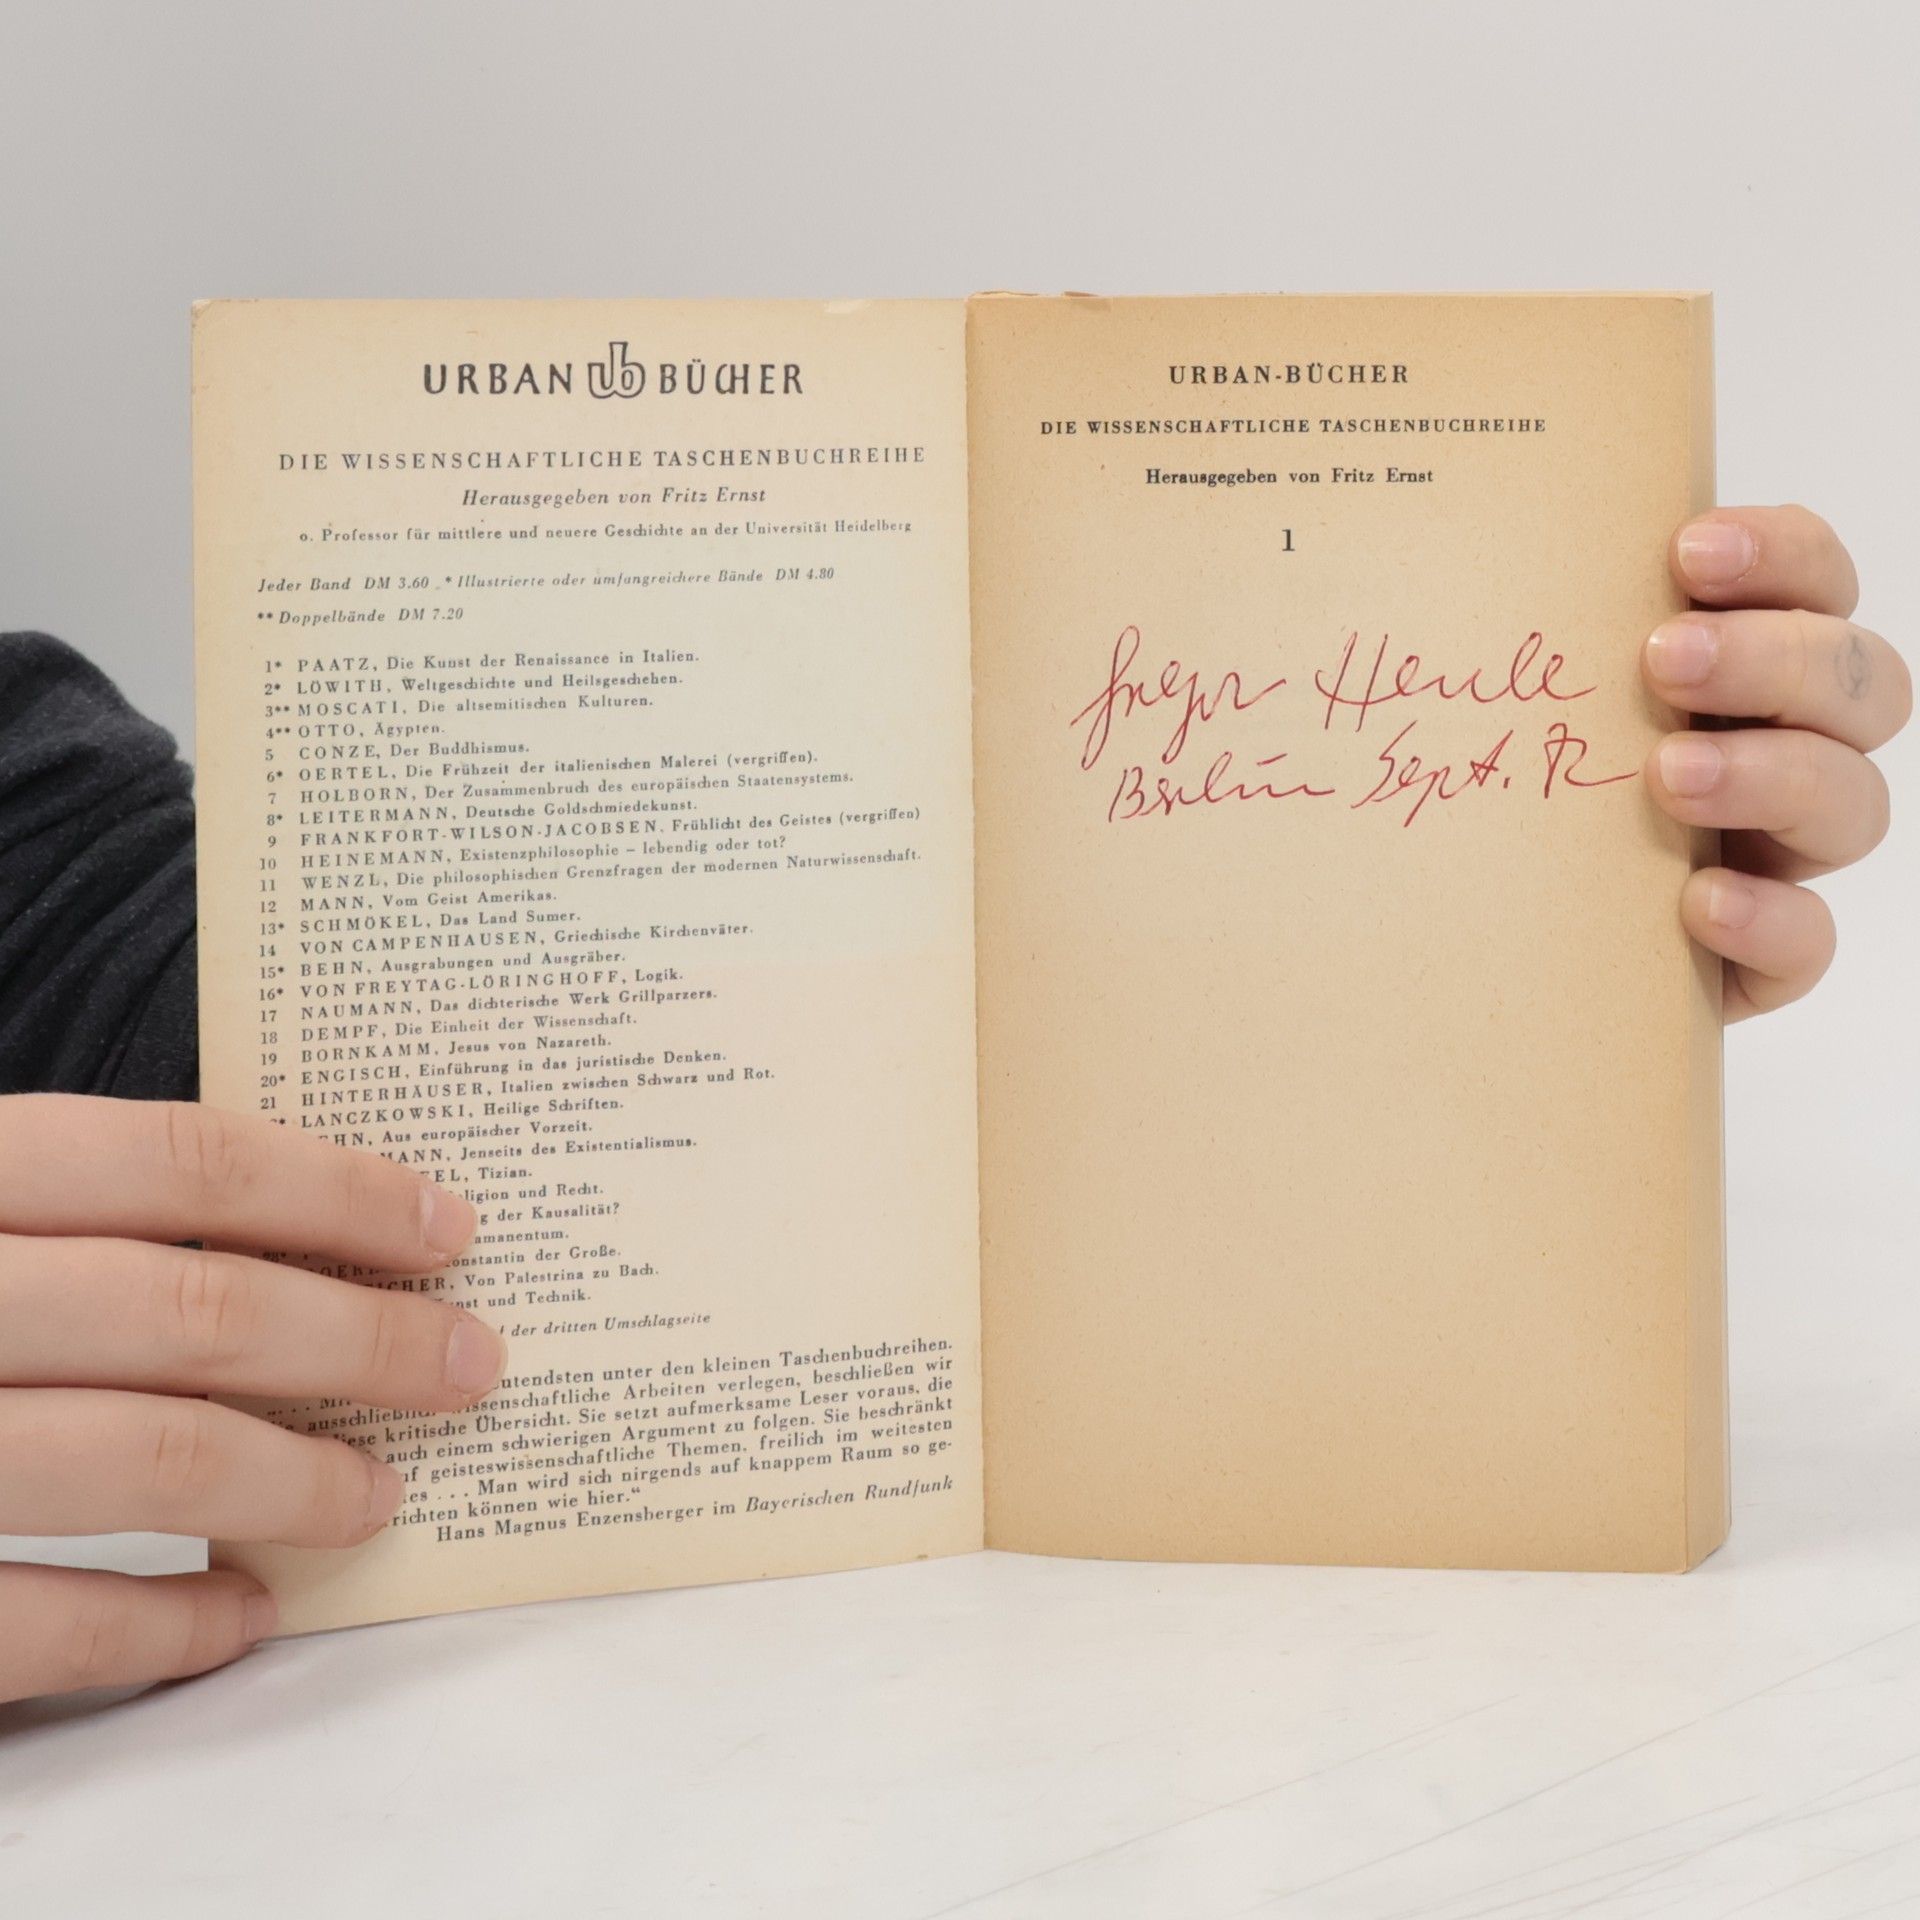 URBAN ub BÜCHER
DIE WISSENSCHAFTLICHE TASCHENBUCHREIHE
Herausgegeben von Fritz Ernst
o. Professor für mittlere und neuere Geschichte an der Universität Heidelberg
Jeder Band DM 3.60 * Illustrierte oder umfangreichere Bände DM 4.80
** Doppelbände DM 7.20
1* PAATZ, Die Kunst der Renaissance in Italien.
2* LÖWITH, Weltgeschichte und Heilsgeschehen.
3** MOSCATI, Die altsemitischen Kulturen.
4** OTTO, Ägypten.
5 CONZE, Der Buddhismus.
6* OERTEL, Die Frühzeit der italienischen Malerei (vergriffen).
7 HOLBORN, Der Zusammenbruch des europäischen Staatensystems.
8* LEITERMANN, Deutsche Goldschmiedekunst.
9 FRANKFORT-WILSON-JACOBSEN, Frühlicht des Geistes (vergriffen)
10 HEINEMANN, Existenzphilosophie – lebendig oder tot?
11 WENZL, Die philosophischen Grenzfragen der modernen Naturwissenschaft.
12 MANN, Vom Geist Amerikas.
13* SCHMÖKEL, Das Land Sumer.
14 VON CAMPENHAUSEN, Griechische Kirchenväter.
15* BEHN, Ausgrabungen und Ausgräber.
16* VON FREYTAG-LÖRINGHOFF, Logik.
17 NAUMANN, Das dichterische Werk Grillparzers.
18 DEMPF, Die Einheit der Wissenschaft.
19 BORNKAMM, Jesus von Nazareth.
20* ENGISCH, Einführung in das juristische Denken.
21 HINTERHÄUSER, Italien zwischen Schwarz und Rot.
* LANCZKOWSKI, Heilige Schriften.
EHN, Aus europäischer Vorzeit.
MANN, Jenseits des Existentialismus.
EL, Tizian.
eligion und Recht.
g der Kausalität?
amanentum.
onstantin der Große.
ICHER, Von Palestrina zu Bach.
unst und Technik.
der dritten Umschlagseite
utendsten unter den kleinen Taschenbuchreihen.
ausschließlich wissenschaftliche Arbeiten verlegen, beschließen wir
diese kritische Übersicht. Sie setzt aufmerksame Leser voraus, die
auch einem schwierigen Argument zu folgen. Sie beschränkt
uf geisteswissenschaftliche Themen, freilich im weitesten
es . . . Man wird sich nirgends auf knappem Raum so ge-
richten können wie hier.“
Hans Magnus Enzensberger im Bayerischen Rundfunk
URBAN-BÜCHER
DIE WISSENSCHAFTLICHE TASCHENBUCHREIHE
Herausgegeben von Fritz Ernst
1
Gregor Henle
Berlin Sept. 72